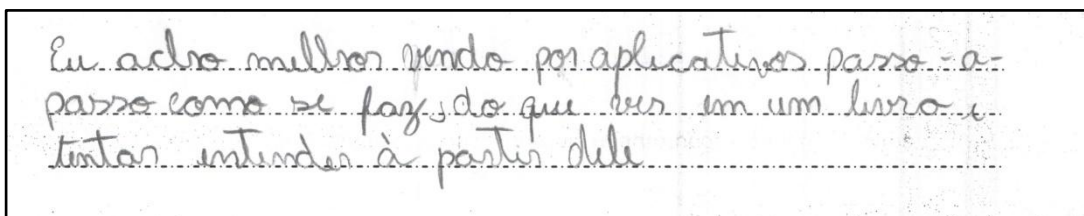 Eu acho melhor vendo por aplicativos passo-a-
passo como se faz, do que ver em um livro e
tentar entender à partir dele